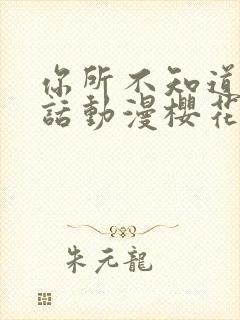 你所不知道
話動漫櫻花
朱元龍